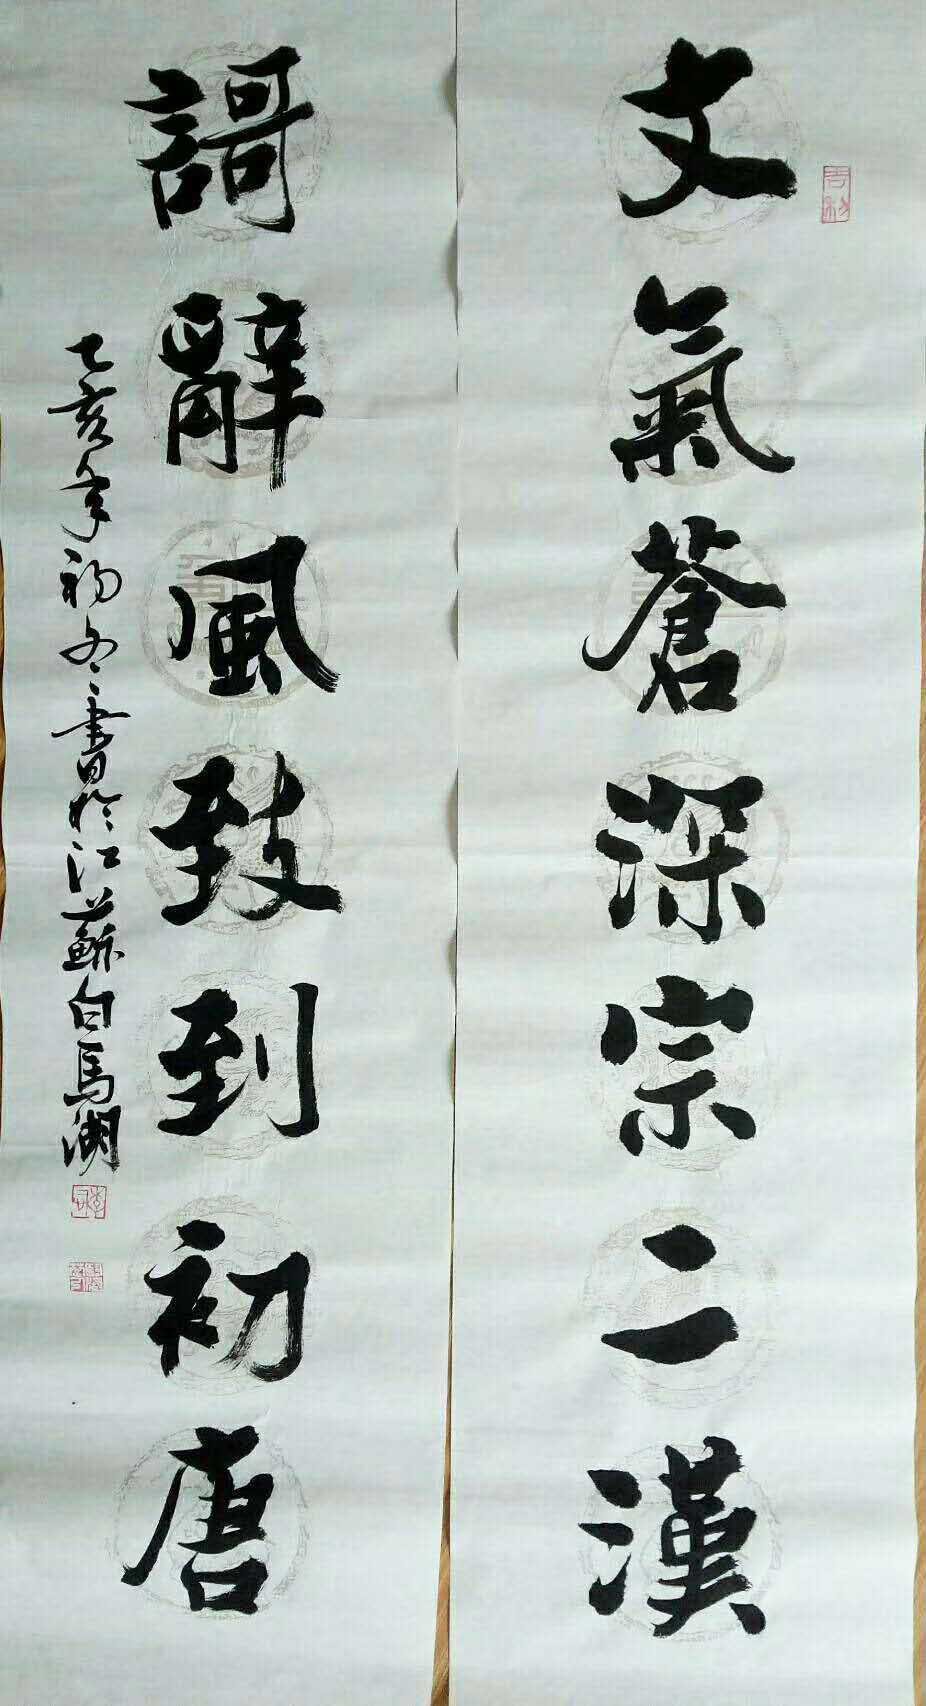 文氣蒼深宗二漢
謌辭風致到初唐
乙亥年初冬書於江蘇白馬湖